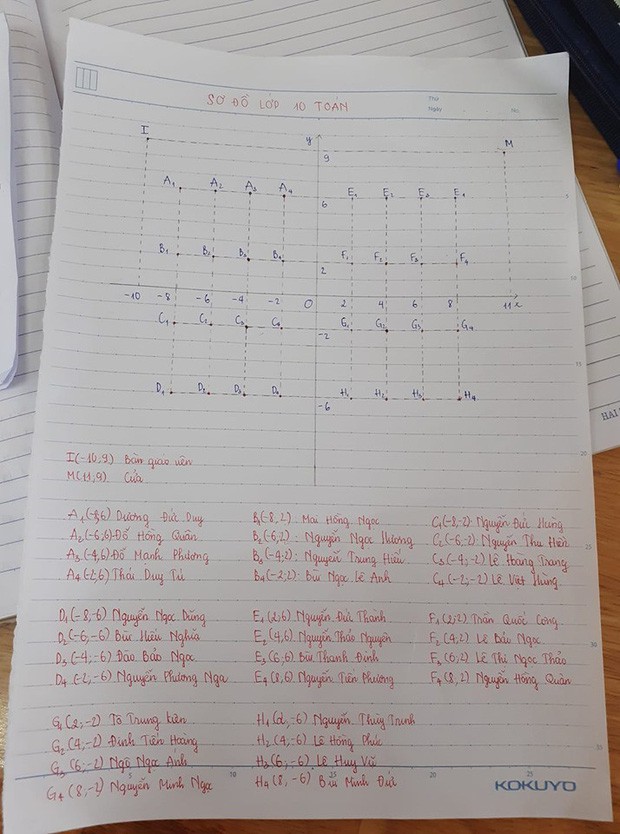 Thứ
Ngày No.
SƠ ĐỒ LỚP 10 TOÁN
I y M
9
A1 A2 A3 A4 E1 E2 E3 E4
6
B1 B2 B3 B4 F1 F2 F3 F4
2
-10 -8 -6 -4 -2 O 2 4 6 8 11 x
C1 C2 C3 C4 G1 G2 G3 G4
-2
D1 D2 D3 D4 H1 H2 H3 H4
-6
I(-10,9) Bàn giáo viên
M(11,9) Cửa
A1(-8,6) Dương Đức Duy
A2(-6,6) Đỗ Hồng Quân
A3(-4,6) Đỗ Mạnh Phương
A4(-2,6) Thái Duy Tú
B1(-8,2) Mai Hồng Ngọc
B2(-6,2): Nguyễn Ngọc Hương
B3(-4,2): Nguyễn Trung Hiếu
B4(-2,2): Bùi Ngọc Lê Anh
C1(-8,-2): Nguyễn Đức Hưng
C2(-6,-2) Nguyễn Thu Hiền
C3(-4,-2) Lê Hoàng Trang
C4(-2,-2) Lê Việt Hùng
D1(-8,-6) Nguyễn Ngọc Dũng
D2(-6,-6) Bùi Hiếu Nghĩa
D3(-4,-6) Đào Bảo Ngọc
D4(-2,-6) Nguyễn Phương Nga
E1(2,6) Nguyễn Đức Thanh
E2(4,6) Nguyễn Thảo Nguyên
E3(6,6) Bùi Thanh Định
E4(8,6) Nguyễn Tiến Phương
F1(2,2) Trần Quốc Công
F2(4,2) Lê Bảo Ngọc
F3(6,2) Lê Thị Ngọc Thảo
F4(8,2) Nguyễn Hồng Quân
G1(2,-2) Tô Trung Kiên
G2(4,-2) Đinh Tiến Hoàng
G3(6,-2) Ngô Ngọc Ánh
G4(8,-2) Nguyễn Minh Ngọc
H1(2,-6) Nguyễn Thùy Trinh
H2(4,-6) Lê Hồng Phúc
H3(6,-6) Lê Huy Vũ
H4(8,-6) Bùi Minh Đức
KOKUYO